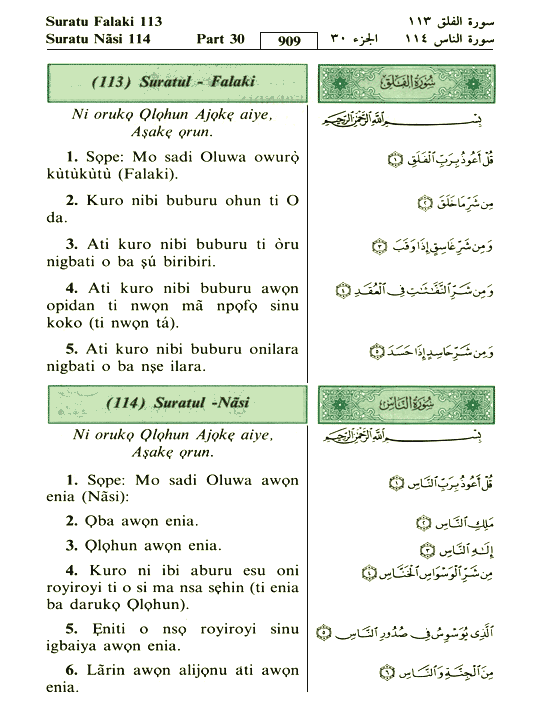 Suratu Falaki 113
Suratu Nãsi 114 Part 30 909 الجزء ٣٠ سورة الفلق ١١٣
سورة الناس ١١٤
(113) Suratul - Falaki
Ni orukọ Ọlọhun Ajọkẹ aiye,
Aṣakẹ ọrun.
1. Sọpe: Mo sadi Oluwa owurọ̀
kùtùkùtù (Falaki).
2. Kuro nibi buburu ohun ti O
da.
3. Ati kuro nibi buburu ti òru
nigbati o ba ṣú biribiri.
4. Ati kuro nibi buburu awọn
opidan ti nwọn mã npọfọ sinu
koko (ti nwọn tá).
5. Ati kuro nibi buburu onilara
nigbati o ba nṣe ilara.
سُورَةُ الفَلَقِ
بِسْمِ ٱللَّهِ ٱلرَّحْمَٰنِ ٱلرَّحِيمِ
قُلْ أَعُوذُ بِرَبِّ ٱلْفَلَقِ ١
مِن شَرِّ مَا خَلَقَ ٢
وَمِن شَرِّ غَاسِقٍ إِذَا وَقَبَ ٣
وَمِن شَرِّ ٱلنَّفَّٰثَٰتِ فِى ٱلْعُقَدِ ٤
وَمِن شَرِّ حَاسِدٍ إِذَا حَسَدَ ٥
(114) Suratul -Nãsi
Ni orukọ Ọlọhun Ajọkẹ aiye,
Aṣakẹ ọrun.
1. Sọpe: Mo sadi Oluwa awọn
enia (Nãsi):
2. Ọba awọn enia.
3. Ọlọhun awọn enia.
4. Kuro ni ibi aburu esu oni
royiroyi ti o si ma nsa sẹhin (ti enia
ba darukọ Ọlọhun).
5. Ẹniti o nsọ royiroyi sinu
igbaiya awọn enia.
6. Lãrin awọn alijọnu ati awọn
enia.
سُورَةُ النَّاسِ
بِسْمِ ٱللَّهِ ٱلرَّحْمَٰنِ ٱلرَّحِيمِ
قُلْ أَعُوذُ بِرَبِّ ٱلنَّاسِ ١
مَلِكِ ٱلنَّاسِ ٢
إِلَٰهِ ٱلنَّاسِ ٣
مِن شَرِّ ٱلْوَسْوَاسِ ٱلْخَنَّاسِ ٤
ٱلَّذِى يُوَسْوِسُ فِى صُدُورِ ٱلنَّاسِ ٥
مِنَ ٱلْجِنَّةِ وَٱلنَّاسِ ٦